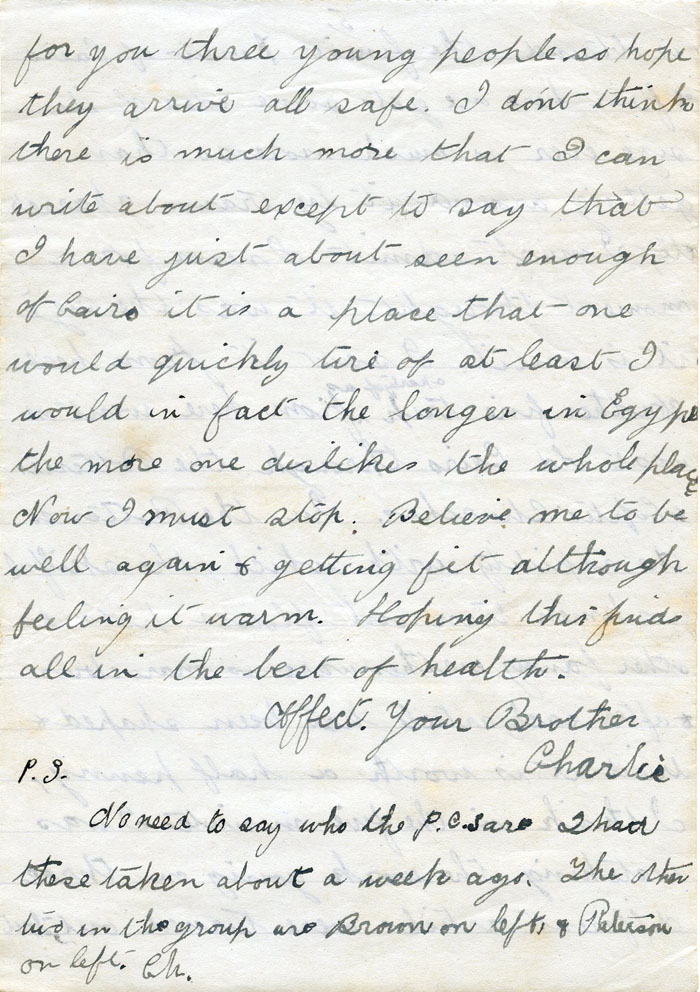 for you three young people so hope
they arrive all safe. I don't think
there is much more that I can
write about except to say that
I have just about seen enough
of Cairo it is a place that one
would quickly tire of at least I
would in fact the longer in Egypt
the more one dislikes the whole place
Now I must stop. Believe me to be
well again & getting fit although
feeling it warm. Hoping this finds
all in the best of health.
Affect. Your Brother
Charlie
P.S.
No need to say who the P.C.s are I had
these taken about a week ago. The other
two in the group are Brown on left, & Paterson
on left. Ch.